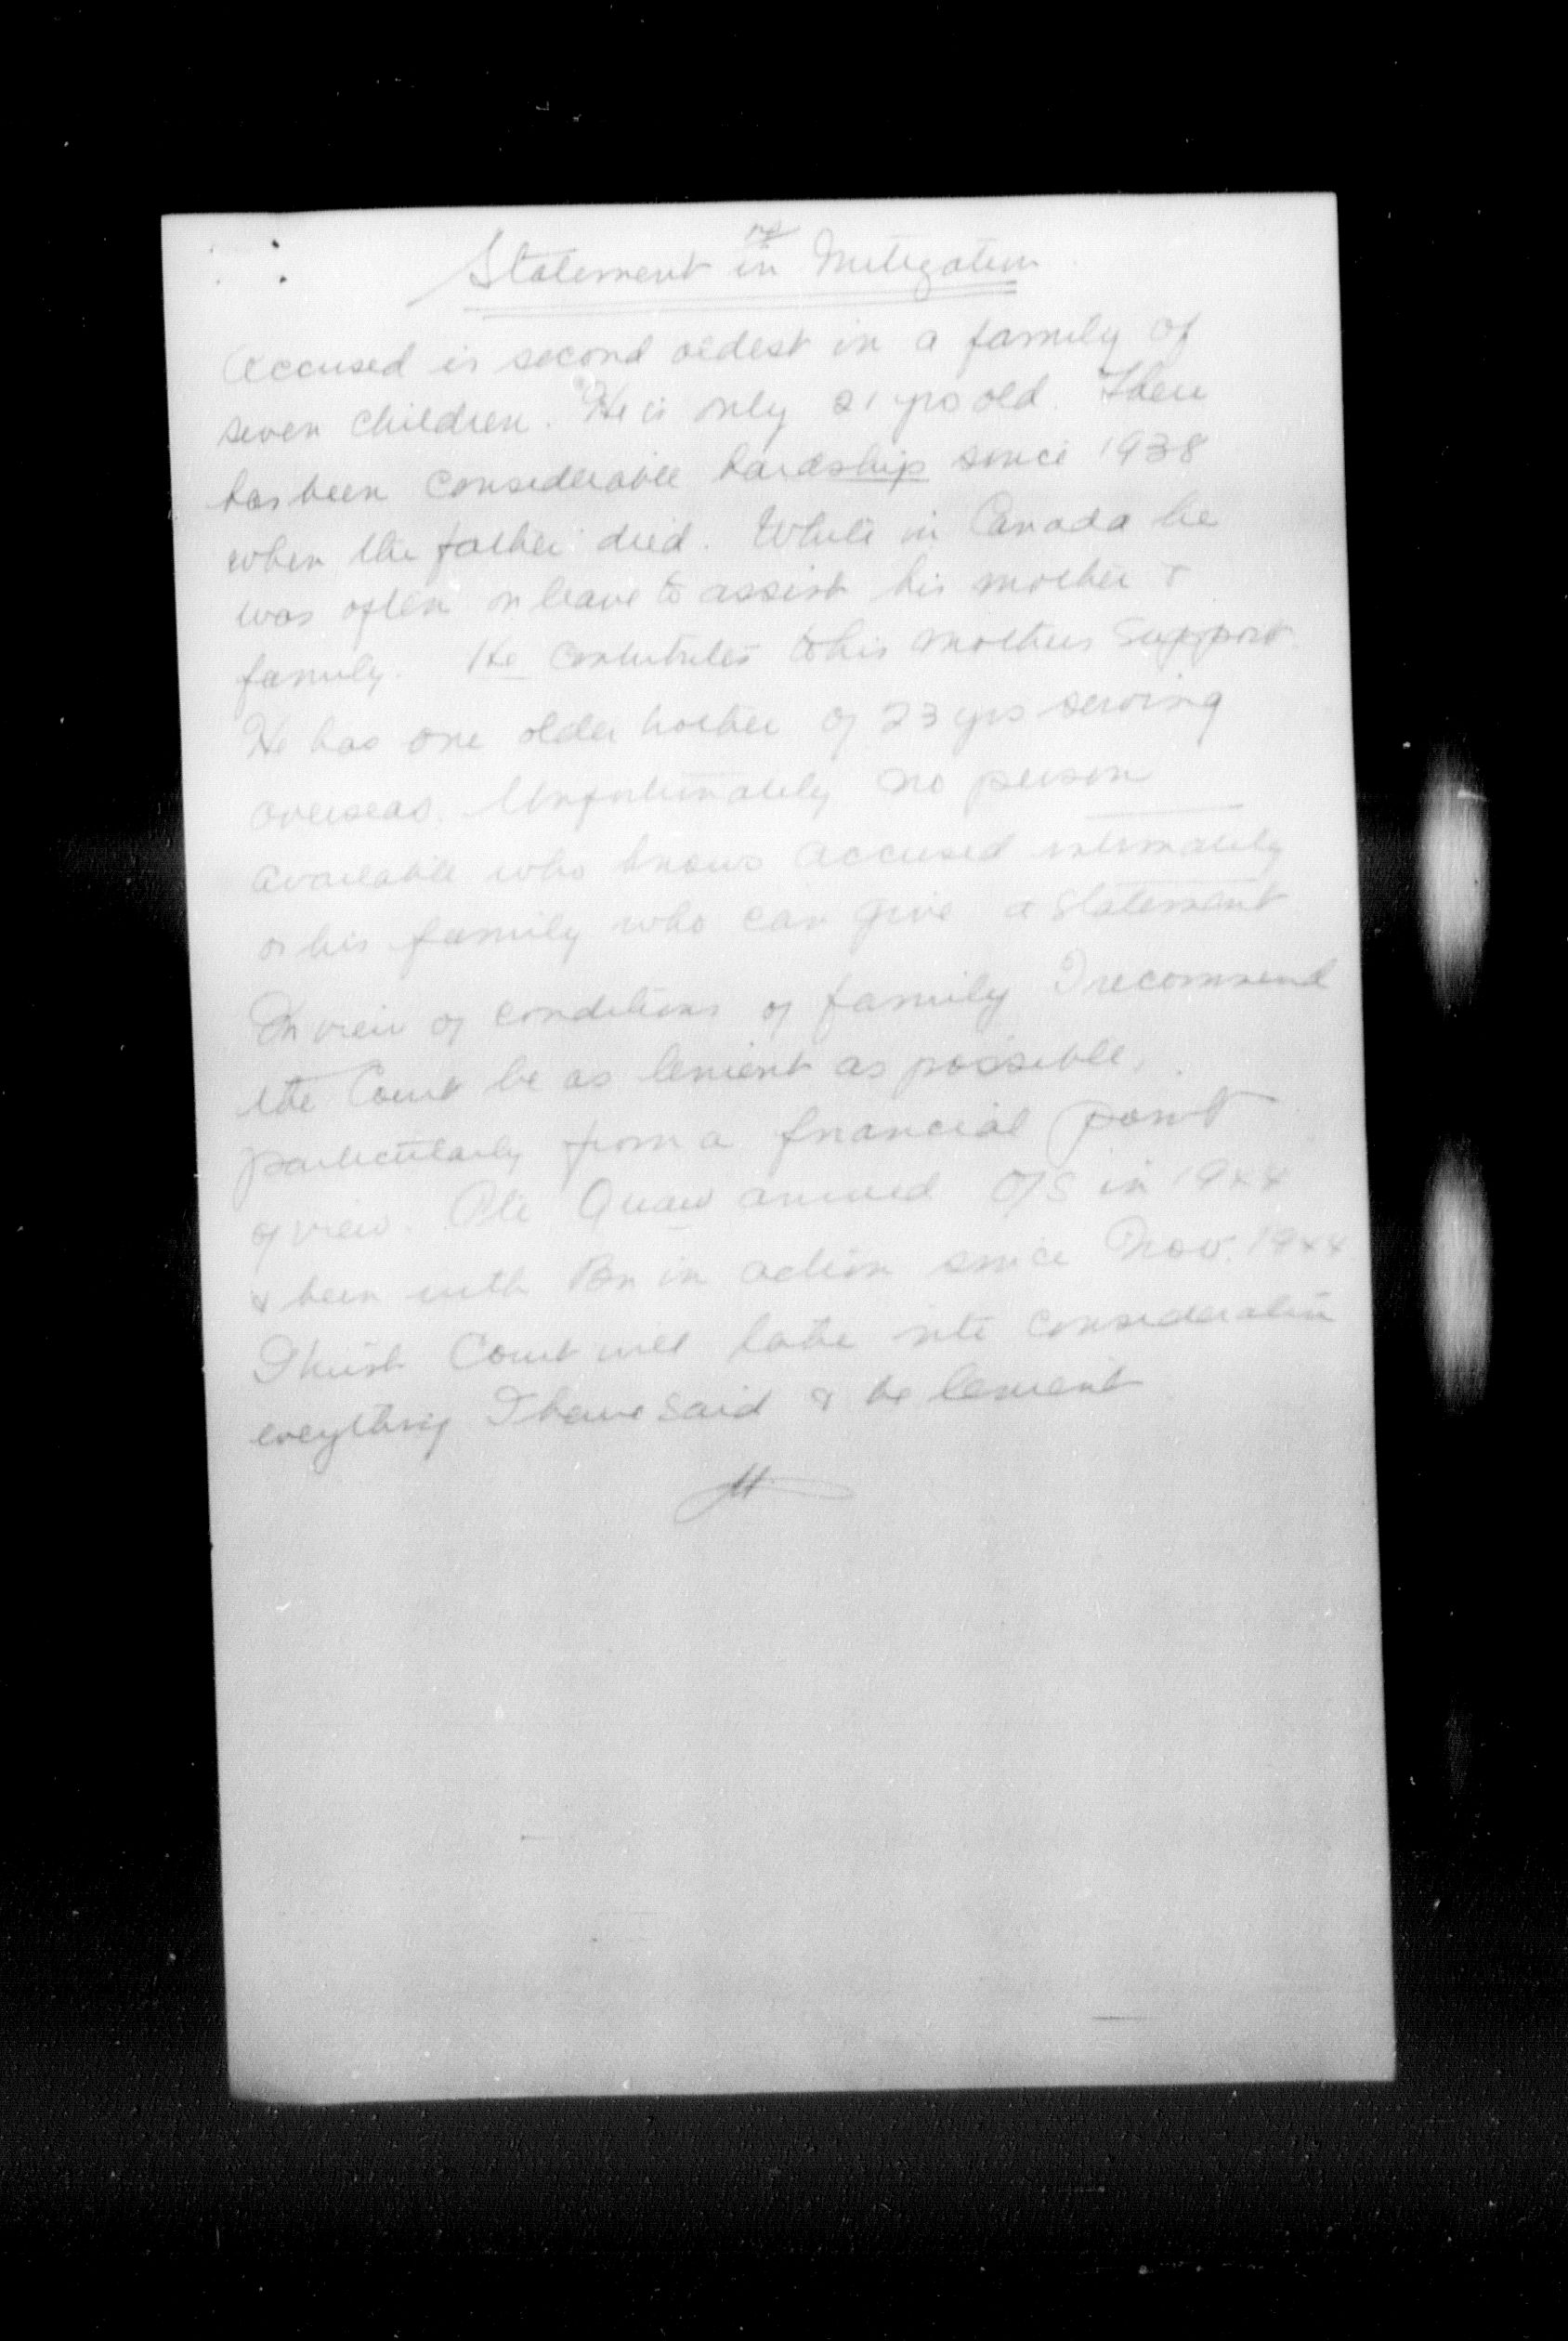 Statement in Mitigation
Accused is second oldest in a family of
seven children. He is only 21 yrs old. There
has been considerable hardship since 1938
when the father died. While in Canada he
was often on leave to assist his mother &
family. He contributes to his mothers support.
He has one older brother of 23 yrs serving
overseas. Unfortunately no person
available who knows accused intimately
or his family who can give a statement
In view of conditions of family I recommend
the Court be as lenient as possible,
particularly from a financial point
of view. Pte arrived O/S in 1944
& been with Bn in action since Nov. 1944
I trust Court will take into consideration
everything I have said & be lenient